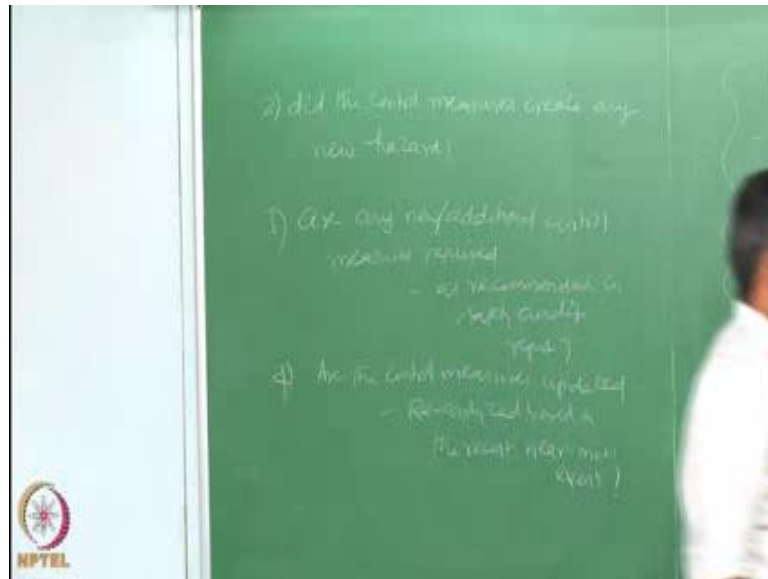 2) did the control measures create any
new hazards
3) are any new/additional control
measures required
- as recommended in
safety audit
report?
4) Are the control measures updated
- Re-analyzed based on
the recent near miss
NPTEL